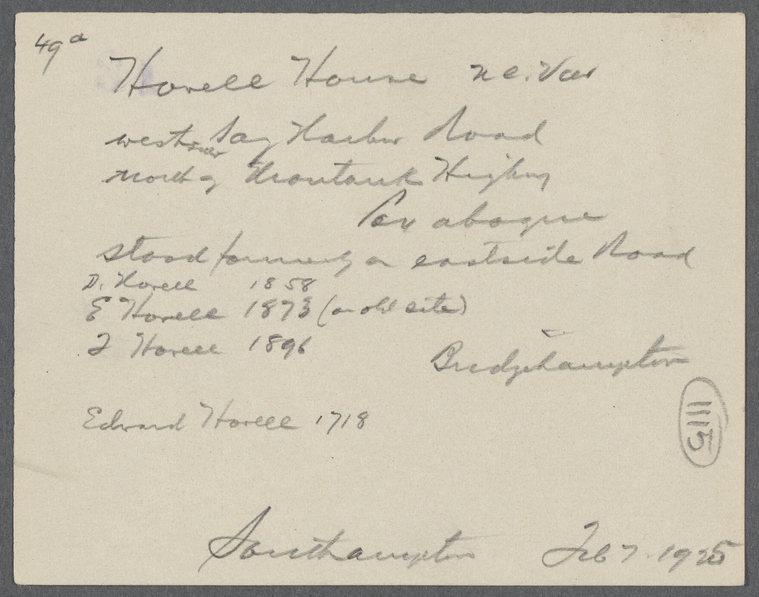 49a
Howell House
west Sag Harbor Road
north of Montauk Highwy
Poxabogue
stood formerly on eastside Road
D. Howell 1858
E Howell 1873 (on old site)
Howell 1896
Bridgehampton
1115
Edward Howell 1718
Southampton Feb 7. 1925